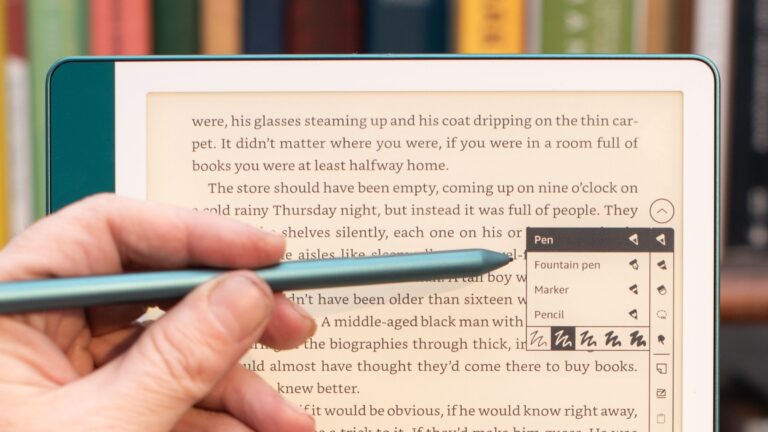 were, his glasses steaming up and his coat dripping on the thin car-
pet. It didn't matter where you were, if you were in a room full of
books you were at least halfway home.
The store should have been empty, coming up on nine o'clock on
cold rainy Thursday night, but instead it was full of people. They
shelves silently, each one on his or
aisles like
A tall boy w
dn't have been older than sixteen w
A middle-aged black man with
the biographies through thick, in
uld almost have thought they'd come there to buy books.
knew better.
if it would be obvious, if he would know right away,
a trick to it. If they'd make him guess. He was
Pen
Fountain pen
Marker
Pencil